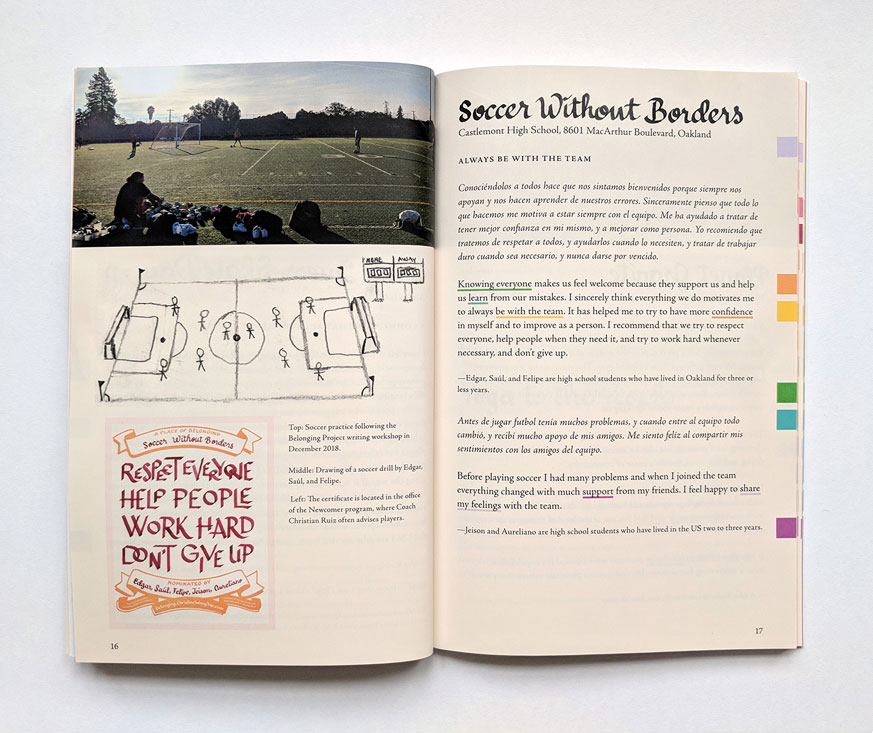 HOME AWAY
A PLACE OF BELONGING
Soccer Without Borders
RESPECT EVERYONE
HELP PEOPLE
WORK HARD
DON'T GIVE UP
NOMINATED BY
Edgar, Saúl, Felipe, Jeison, Aureliano
Top: Soccer practice following the
Belonging Project writing workshop in
December 2018.
Middle: Drawing of a soccer drill by Edgar,
Saúl, and Felipe.
Left: The certificate is located in the office
of the Newcomer program, where Coach
Christian Ruiz often advises players.
16
Soccer Without Borders
Castlemont High School, 8601 MacArthur Boulevard, Oakland
ALWAYS BE WITH THE TEAM
Conociéndolos a todos hace que nos sintamos bienvenidos porque siempre nos
apoyan y nos hacen aprender de nuestros errores. Sinceramente pienso que todo lo
que hacemos me motiva a estar siempre con el equipo. Me ha ayudado a tratar de
tener mejor confianza en mi mismo, y a mejorar como persona. Yo recomiendo que
tratemos de respetar a todos, y ayudarlos cuando lo necesiten, y tratar de trabajar
duro cuando sea necesario, y nunca darse por vencido.
Knowing everyone makes us feel welcome because they support us and help
us learn from our mistakes. I sincerely think everything we do motivates me
to always be with the team. It has helped me to try to have more confidence
in myself and to improve as a person. I recommend that we try to respect
everyone, help people when they need it, and try to work hard whenever
necessary, and don't give up.
—Edgar, Saúl, and Felipe are high school students who have lived in Oakland for three or
less years.
Antes de jugar futbol tenía muchos problemas, y cuando entre al equipo todo
cambió, y recibí mucho apoyo de mis amigos. Me siento feliz al compartir mis
sentimientos con los amigos del equipo.
Before playing soccer I had many problems and when I joined the team
everything changed with much support from my friends. I feel happy to share
my feelings with the team.
—Jeison and Aureliano are high school students who have lived in the US two to three years.
17